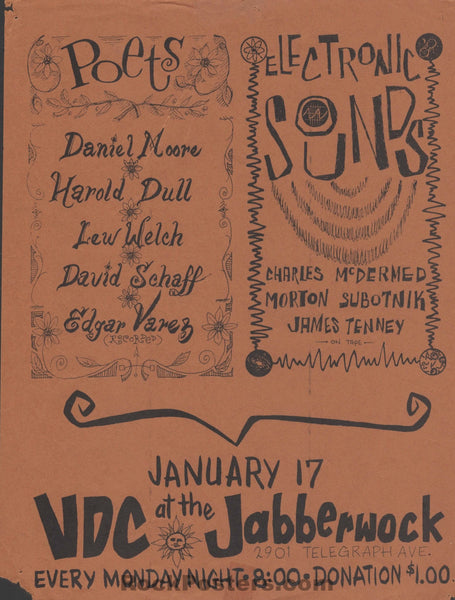 Poets
Daniel Moore
Harold Dull
Lew Welch
David Schaff
Edgar Varez
(RECORDED)
ELECTRONIC
SOUNDS
CHARLES McDERMED
MORTON SUBOTNIK
JAMES TENNEY
— ON TAPE —
JANUARY 17
VDC at the Jabberwock
2901 TELEGRAPH AVE.
EVERY MONDAY NIGHT • 8:00 • DONATION $1.00
RockPosters.com